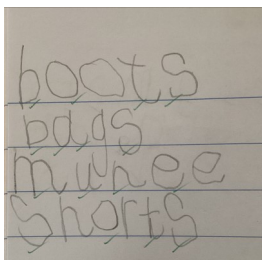 boots
bags
munee
shorts